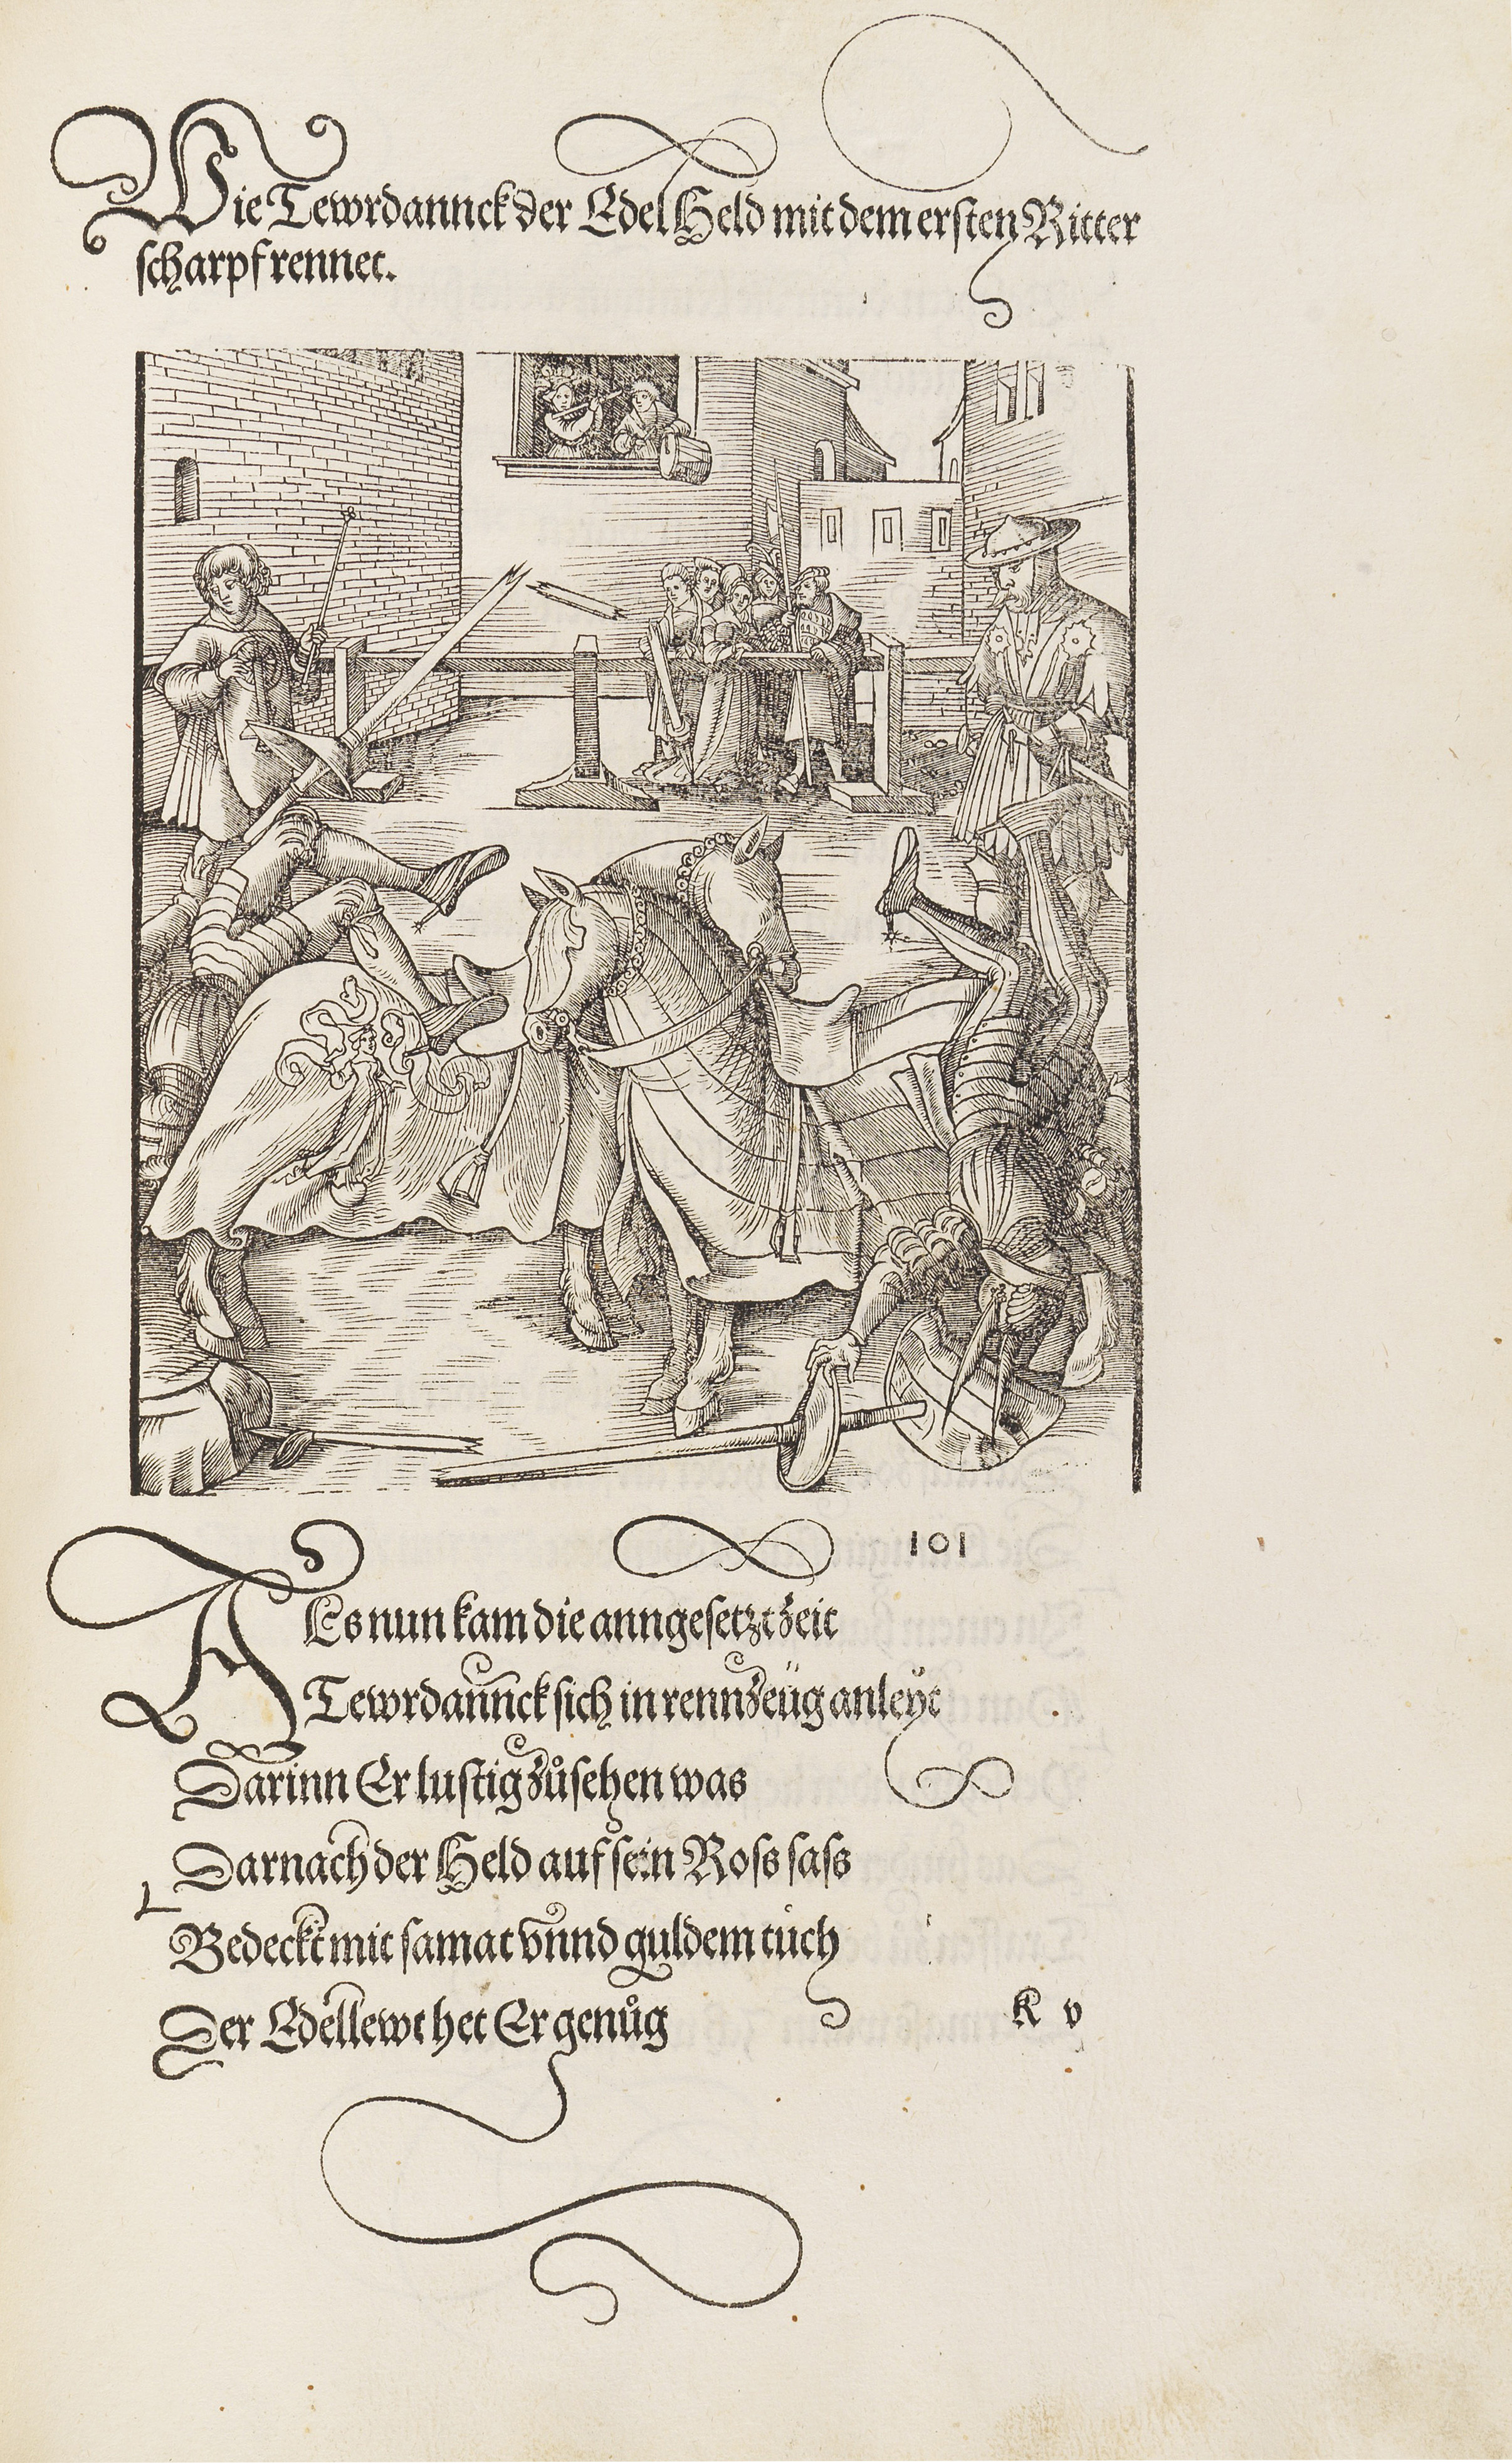 Wie Tewrdannck der Edel Held mit dem ersten Ritter
scharpf rennet.
101
ALs nun kam die anngesetzt zeit
Tewrdannck sich in rennzeüg anleyt
Darinn Er lustig zůsehen was
Darnach der Held auf sein Ross sass
Bedeckt mit samat vnnd guldem tuch
Der Edellewt het Er genůg
K v